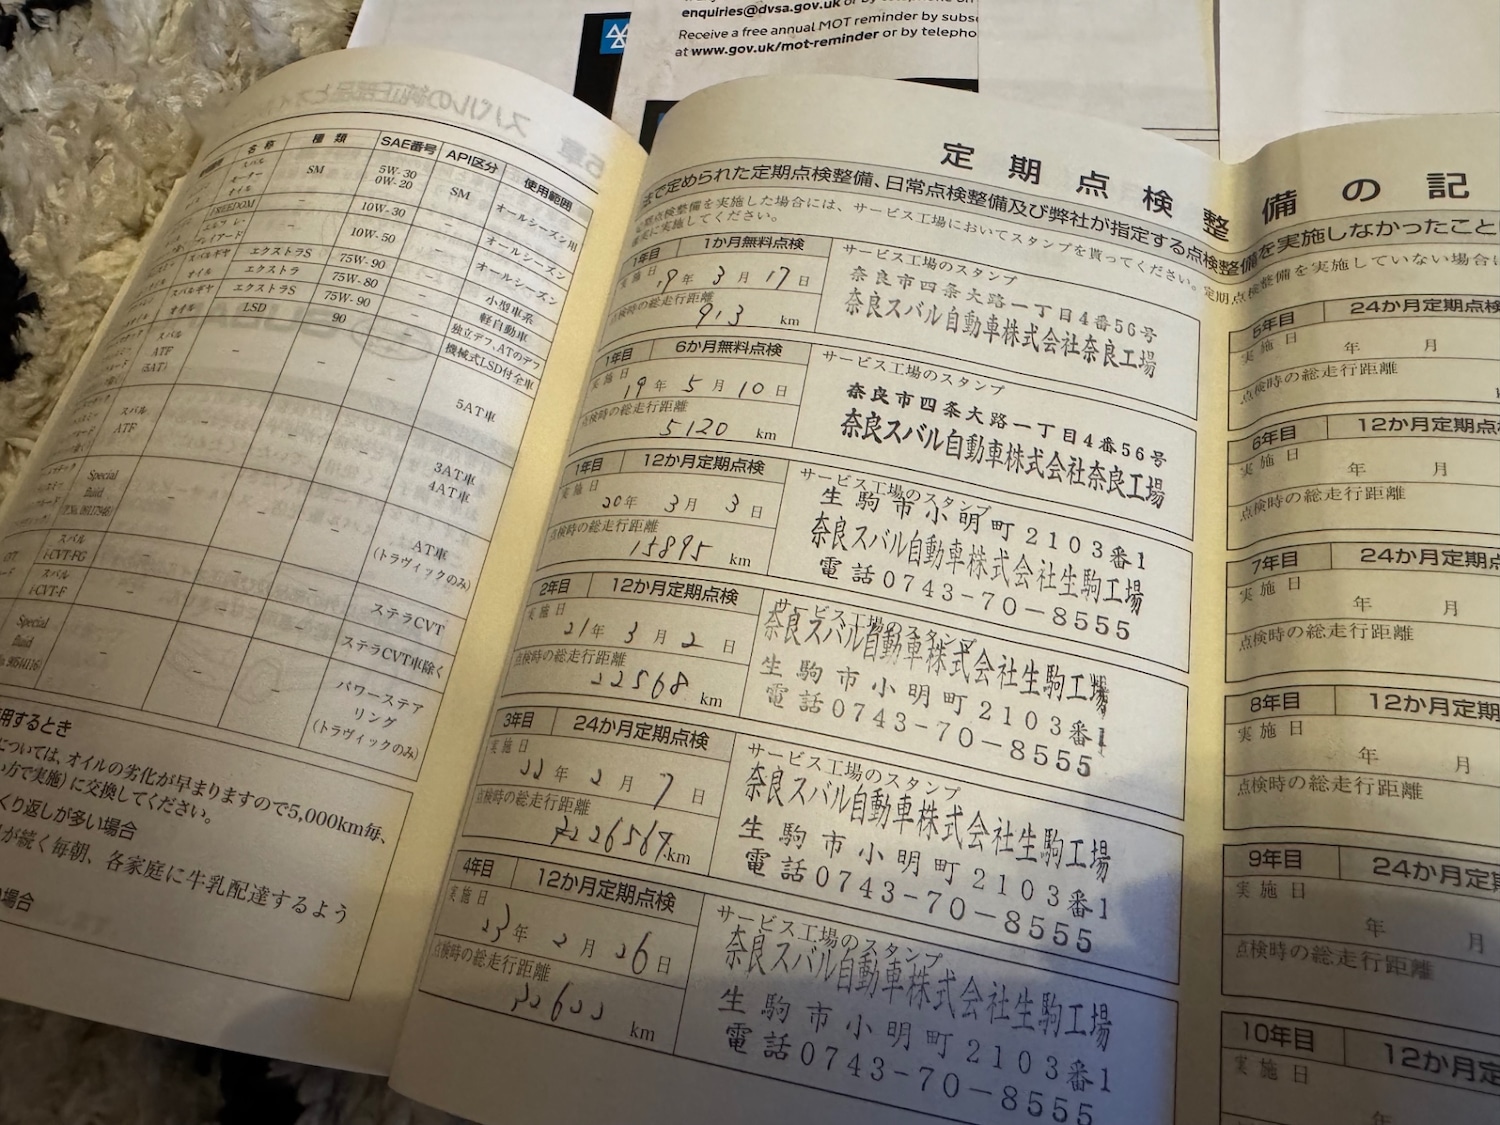 enquiries@dvsa.gov.uk or by telephone on
Receive a free annual MOT reminder by subs
at www.gov.uk/mot-reminder or by telepho
名称 種類 SAE番号 API区分 使用範囲
スバル
モーター
オイル
SM
5W-30
0W-20
SM
オールシーズン用
FREEDOM - 10W-30 - オールシーズン
エルフ レ・
プレイアード
- 10W-50 - オールシーズン
スバルギヤ
オイル
エクストラS 75W-90 - 小型車系
エクストラ 75W-80 - 軽自動車
スバルギヤ
オイル
エクストラS 75W-90 - 独立デフ、ATのデフ
LSD 90 - 機械式LSD付全車
スバル
ATF
(5AT)
- - - 5AT車
スバル
ATF
- - - 3AT車
4AT車
Special
fluid
- - - AT車
(トラヴィックのみ)
スバル
i-CVT-FG
- - - ステラCVT
スバル
i-CVT-F
- - - ステラCVT車除く
Special
fluid
- - - パワーステア
リング
(トラヴィックのみ)
用するとき
については、オイルの劣化が早まりますので5,000km毎、
い方で実施)に交換してください。
くり返しが多い場合
が続く毎朝、各家庭に牛乳配達するよう
い場合
定期点検整備の記
まで定められた定期点検整備、日常点検整備及び弊社が指定する点検整備を実施しなかったこと
定期点検整備を実施した場合には、サービス工場においてスタンプを貰ってください。定期点検整備を実施していない場合に
確実に実施してください。
1年目 1か月無料点検
実施日 19年 3月 17日
点検時の総走行距離
913 km
サービス工場のスタンプ
奈良市四条大路一丁目4番56号
奈良スバル自動車株式会社奈良工場
1年目 6か月無料点検
実施日 19年 5月 10日
点検時の総走行距離
5120 km
サービス工場のスタンプ
奈良市四条大路一丁目4番56号
奈良スバル自動車株式会社奈良工場
1年目 12か月定期点検
実施日 20年 3月 3日
点検時の総走行距離
15895 km
サービス工場のスタンプ
生駒市小明町2103番1
奈良スバル自動車株式会社生駒工場
電話0743-70-8555
2年目 12か月定期点検
実施日 21年 3月 2日
点検時の総走行距離
22568 km
サービス工場のスタンプ
奈良スバル自動車株式会社生駒工場
生駒市小明町2103番1
電話0743-70-8555
3年目 24か月定期点検
実施日 22年 2月 7日
点検時の総走行距離
km
サービス工場のスタンプ
奈良スバル自動車株式会社生駒工場
生駒市小明町2103番1
電話0743-70-8555
4年目 12か月定期点検
実施日 23年 2月 26日
点検時の総走行距離
km
サービス工場のスタンプ
奈良スバル自動車株式会社生駒工場
生駒市小明町2103番1
電話0743-70-8555
5年目 24か月定期点検
実施日
年 月
点検時の総走行距離
6年目 12か月定期点
実施日
年 月
点検時の総走行距離
7年目 24か月定期点
実施日
年 月
点検時の総走行距離
8年目 12か月定期
実施日
年 月
点検時の総走行距離
9年目 24か月定期
実施日
年 月
点検時の総走行距離
10年目 12か月定
実施日
年